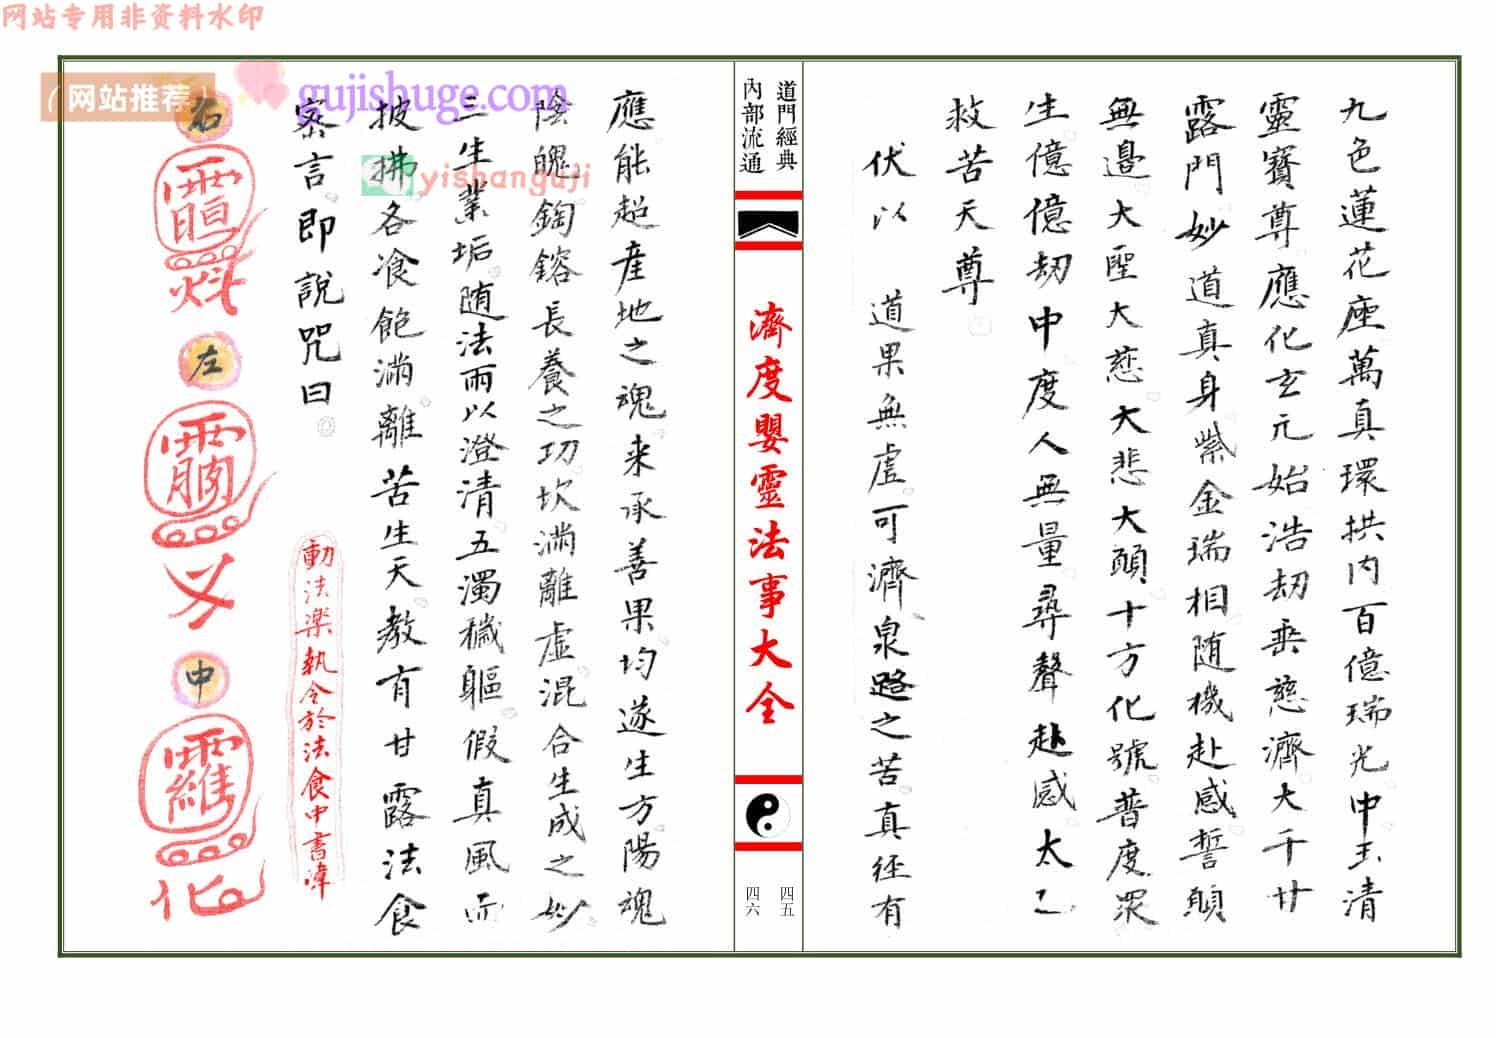 网站专用非资料水印
网站推荐
gujishuge.com
yishanguji
九色蓮花座萬真環拱內百億瑞光中玉清
靈寶尊應化玄元始浩劫垂慈濟大千甘
露門妙道真身紫金瑞相随機赴感誓願
無邊大聖大慈大悲大願十方化號普度眾
生億億劫中度人無量尋聲赴感太乙
救苦天尊
伏以 道果無虛可濟泉路之苦真径有
道門經典
內部流通
濟度嬰靈法事大全
四五
四六
應能超産地之魂来承善果均遂生方陽魂
陰魄鋾鎔長養之功坎满離虛混合生成之妙
三生業垢随法雨以澄清五濁穢軀假真風而
披拂各飡飽满離苦生天教有甘露法食
宻言即説咒曰
動法樂執令於法食中書諱
右
左
中
化